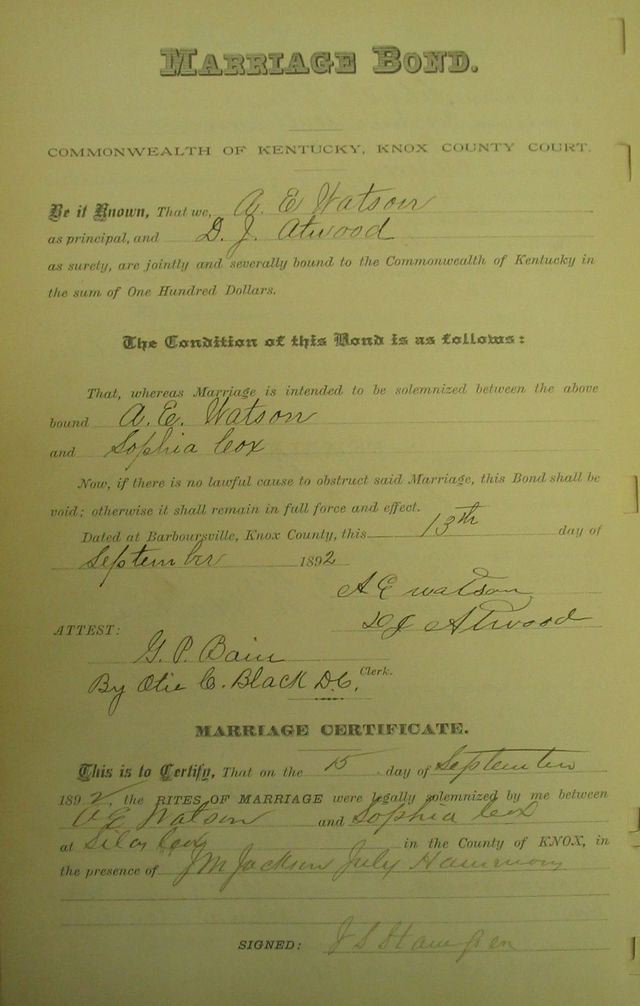 MARRIAGE BOND.
COMMONWEALTH OF KENTUCKY, KNOX COUNTY COURT.
Be it Known, That we, A. E Watson
as principal, and D. J. Atwood
as surety, are jointly and severally bound to the Commonwealth of Kentucky in
the sum of One Hundred Dollars.
The Condition of this Bond is as follows:
That, whereas Marriage is intended to be solemnized between the above
bound A. E. Watson
and Sophia Cox
Now, if there is no lawful cause to obstruct said Marriage, this Bond shall be
void; otherwise it shall remain in full force and effect.
Dated at Barboursville, Knox County, this 13th day of
September 1892
A E Watson
D J Atwood
ATTEST:
G. P. Bain
Clerk.
By Otie C. Black D.C.
MARRIAGE CERTIFICATE.
This is to Certify, That on the 15 day of September
1892, the RITES OF MARRIAGE were legally solemnized by me between
A E Watson and Sophia Cox
at Silas Cox in the County of KNOX, in
the presence of J M Jackson July
SIGNED: J S